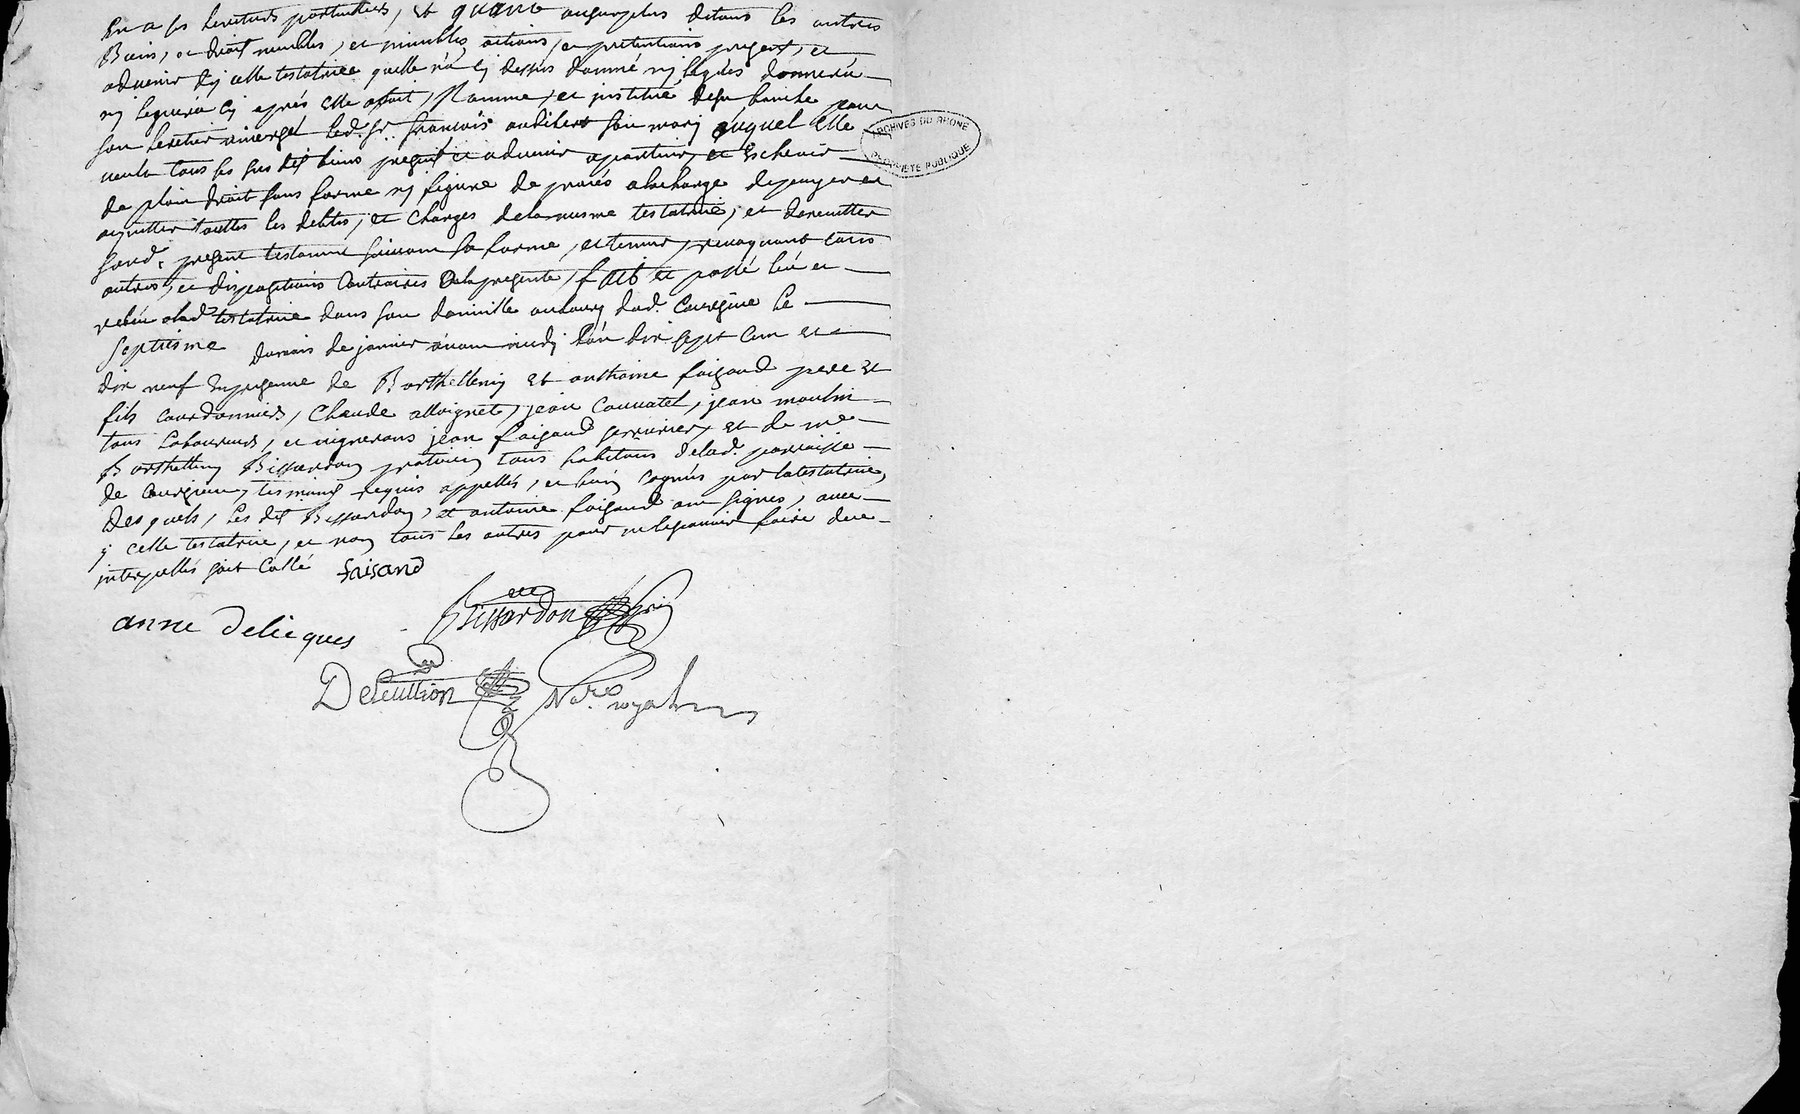 en a ses heritiers particulliers, et quant au surplus de tous les autres
Biens, et droits meubles, et immeubles, actions, et pretentions presents, et
advenir d'jcelle testatrice quelle n'a cy dessus donné ny legués donnera
ny leguera cy aprés elle a fait, Nommé, et jnstitué de sa bouche pour
son heritier universel led. Sr. francois audibert son mary auquel elle
veult tous ses susdits biens presents et advenir apartenir, et Escheoir
de plain droit sans forme ny figure de procés a la charge de payer et
acquitter touttes les debtes, et charges de la mesme testatrice, et
sond. present testament suivant sa forme, et teneur, revoquant tous
autres, et dispositions contraires a la presente, fait et passé leu et
releu a lad. testatrice dans son domicille au bourg dud. Courzieu le
septiesme du mois de janvier avant midy l'an dix sept cent et
dix neuf En presence de Barthellemy et anthoine faisand pere et
fils cordonniers, Claude alloignet, jean Couvatel, jean moulin
tous laboureurs, et vignerons jean faisand serrurier, et de me
Barthellemy Bissardon praticien tous habitans de lad. parroisse
de Courzieu, tesmoins requis appellés, et bien cognus par la testatrice,
desquels, les dits Bissardon, et antoine faisand ont signés, avec
jcelle testatrice, et non tous les autres pour ne le scavoir faire de ce
jnterpellés soit Collé faisand
anne delicques Bissardon
Deleullion Nore. royal
ARCHIVES DU RHONE
PROPRIETE PUBLIQUE